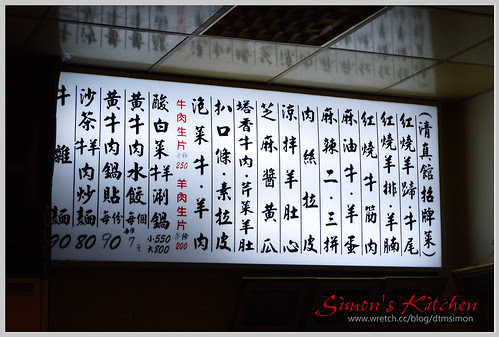 (清真館招牌菜)
紅燒羊蹄·牛尾
紅燒羊排·羊腩
紅燒牛筋肉
麻油牛·羊蛋
麻辣二·三拼
肉絲拉皮
涼拌羊肚心
芝麻醬黃瓜
塔香牛肉·芹菜羊肚
扒口條素拉皮
泡菜牛·羊肉
牛肉生片 250 羊肉生片 200
酸白菜牛羊涮鍋 小550 大800
黃牛肉水餃 每個 7
黃牛肉鍋貼 每份 90
沙茶牛羊肉炒麵 80
牛雜麵 90
Simon's Kitchen
www.wretch.cc/blog/dtmsimon